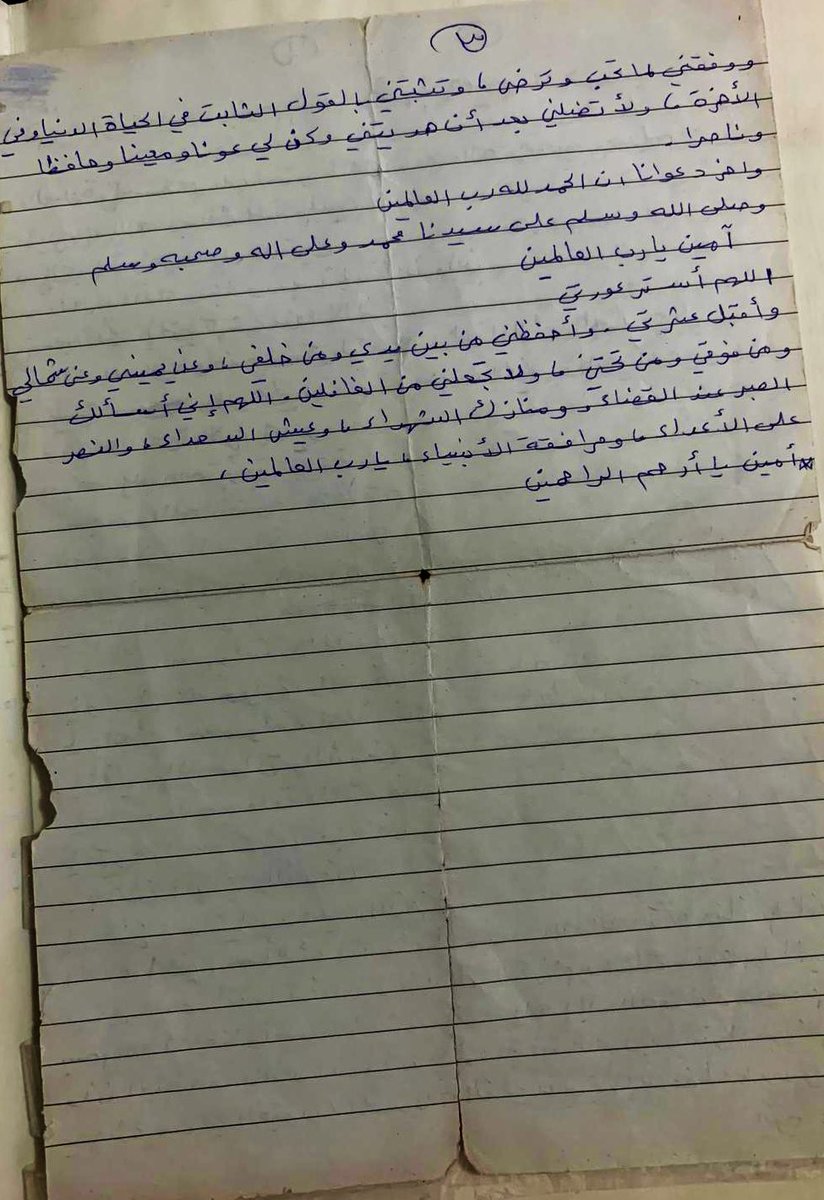 ٣
ووفقتني لما تحب وترضى، وتثبتني بالقول الثابت في الحياة الدنيا وفي
الأخرة، ولا تضلني بعد أن هديتني وكن لي عونا ومعينا وحافظا
وناصرا.
واخر دعوانا ان الحمد لله رب العالمين
وصلى الله وسلم على سيدنا محمد وعلى اله وصحبه وسلم
آمين يارب العالمين
اللهم أستر عورتي
وأقبل عثرتي. وأحفظني من بين يدي ومن خلفي، وعن يميني وعن شمالي
ومن فوقي ومن تحتي، ولا تجعلني من الغافلين. اللهم إني أسألك
الصبر عند القضاء ومنازل الشهداء، وعيش السعداء، والنصر
على الأعداء، ومرافقة الأنبياء، يارب العالمين،
أمين يا أرحم الراحمين